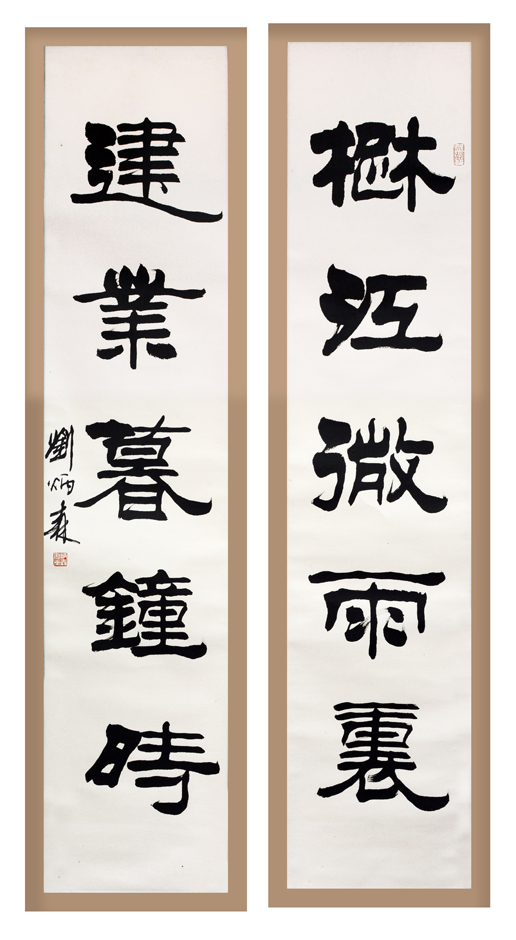 楚江微雨裏
建業暮鐘時
劉炳森